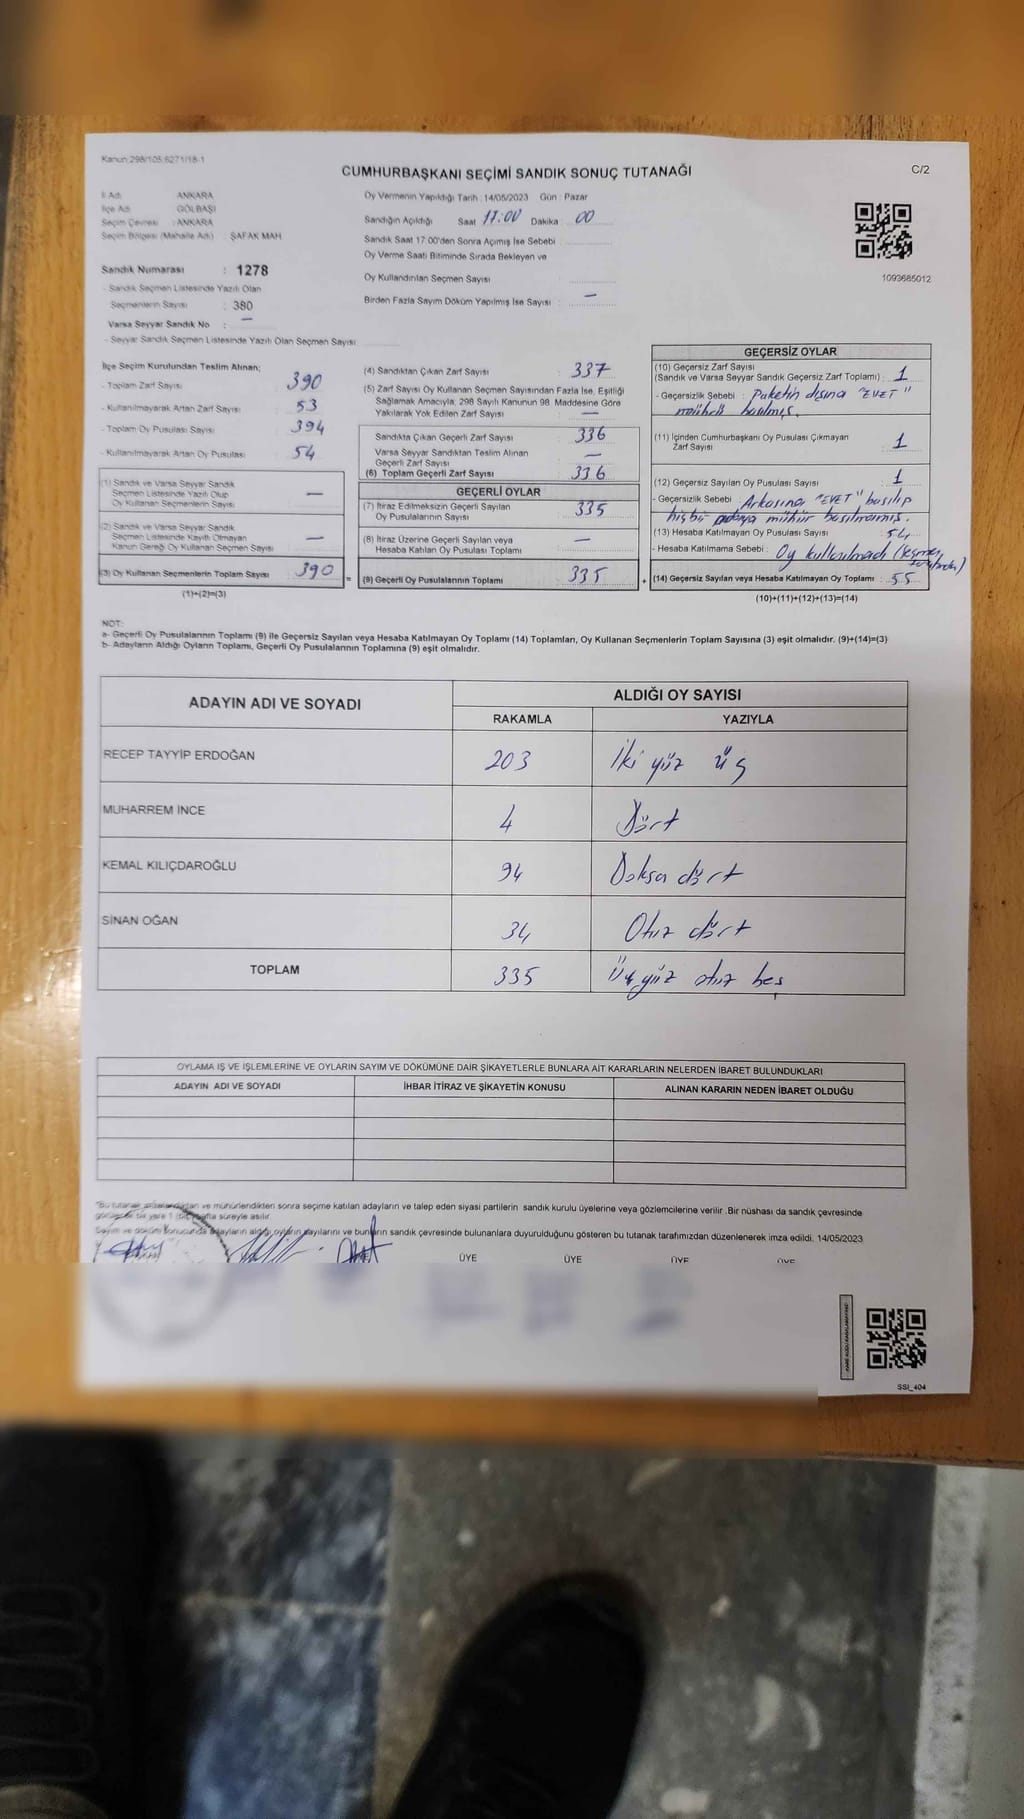 Kanun:298/105:6271/18-1
CUMHURBAŞKANI SEÇİMİ SANDIK SONUÇ TUTANAĞI
C/2
İl Adı ANKARA
İlçe Adı GÖLBAŞI
Seçim Çevresi : ANKARA
Seçim Bölgesi (Mahalle Adı) : ŞAFAK MAH
Sandık Numarası : 1278
- Sandık Seçmen Listesinde Yazılı Olan
Seçmenlerin Sayısı : 380
Varsa Seyyar Sandık No : —
- Seyyar Sandık Seçmen Listesinde Yazılı Olan Seçmen Sayısı
Oy Vermenin Yapıldığı Tarih : 14/05/2023 Gün : Pazar
Sandığın Açıldığı Saat 17:00 Dakika : 00
Sandık Saat 17:00'den Sonra Açımış İse Sebebi :
Oy Verme Saati Bitiminde Sırada Bekleyen ve
Oy Kullandırılan Seçmen Sayısı :
Birden Fazla Sayım Döküm Yapılmış İse Sayısı : —
1093685012
İlçe Seçim Kurulundan Teslim Alınan;
- Toplam Zarf Sayısı : 390
- Kullanılmayarak Artan Zarf Sayısı : 53
- Toplam Oy Pusulası Sayısı : 394
- Kullanılmayarak Artan Oy Pusulası : 54
(1) Sandık ve Varsa Seyyar Sandık
Seçmen Listesinde Yazılı Olup
Oy Kullanan Seçmenlerin Sayısı —
(2) Sandık ve Varsa Seyyar Sandık
Seçmen Listesinde Kayıtlı Olmayan
Kanun Gereği Oy Kullanan Seçmen Sayısı —
(3) Oy Kullanan Seçmenlerin Toplam Sayısı 390 =
(1)+(2)=(3)
(4) Sandıktan Çıkan Zarf Sayısı : 337
(5) Zarf Sayısı Oy Kullanan Seçmen Sayısından Fazla İse, Eşitliği
Sağlamak Amacıyla, 298 Sayılı Kanunun 98. Maddesine Göre
Yakılarak Yok Edilen Zarf Sayısı : —
Sandıkta Çıkan Geçerli Zarf Sayısı : 336
Varsa Seyyar Sandıktan Teslim Alınan
Geçerli Zarf Sayısı : —
(6) Toplam Geçerli Zarf Sayısı : 336
GEÇERLİ OYLAR
(7) İtiraz Edilmeksizin Geçerli Sayılan
Oy Pusulalarının Sayısı : 335
(8) İtiraz Üzerine Geçerli Sayılan veya
Hesaba Katılan Oy Pusulası Toplamı : —
(9) Geçerli Oy Pusulalarının Toplamı : 335 +
GEÇERSİZ OYLAR
(10) Geçersiz Zarf Sayısı
(Sandık ve Varsa Seyyar Sandık Geçersiz Zarf Toplamı) : 1
- Geçersizlik Sebebi : Paketin dışına "EVET"
mührü basılmış.
(11) İçinden Cumhurbaşkanı Oy Pusulası Çıkmayan
Zarf Sayısı : 1
(12) Geçersiz Sayılan Oy Pusulası Sayısı : 1
- Geçersizlik Sebebi : Arkasına "EVET" basılıp
hiçbir mühür basılmamış.
(13) Hesaba Katılmayan Oy Pusulası Sayısı : 54
- Hesaba Katılmama Sebebi : Oy kullanılmadı (seçmen
(14) Geçersiz Sayılan veya Hesaba Katılmayan Oy Toplamı : 55
(10)+(11)+(12)+(13)=(14)
NOT:
a- Geçerli Oy Pusulalarının Toplamı (9) ile Geçersiz Sayılan veya Hesaba Katılmayan Oy Toplamı (14) Toplamları, Oy Kullanan Seçmenlerin Toplam Sayısına (3) eşit olmalıdır. (9)+(14)=(3)
b- Adayların Aldığı Oyların Toplamı, Geçerli Oy Pusulalarının Toplamına (9) eşit olmalıdır.
ADAYIN ADI VE SOYADI ALDIĞI OY SAYISI
RAKAMLA YAZIYLA
RECEP TAYYİP ERDOĞAN 203 İki yüz üç
MUHARREM İNCE 4 Dört
KEMAL KILIÇDAROĞLU 94 Doksan dört
SİNAN OĞAN 34 Otuz dört
TOPLAM 335 Üç yüz otuz beş
OYLAMA İŞ VE İŞLEMLERİNE VE OYLARIN SAYIM VE DÖKÜMÜNE DAİR ŞİKAYETLERLE BUNLARA AİT KARARLARIN NELERDEN İBARET BULUNDUKLARI
ADAYIN ADI VE SOYADI İHBAR İTİRAZ VE ŞİKAYETİN KONUSU ALINAN KARARIN NEDEN İBARET OLDUĞU
"Bu tutanak ve mühürlendikten sonra seçime katılan adayların ve talep eden siyasi partilerin sandık kurulu üyelerine veya gözlemcilerine verilir .Bir nüshası da sandık çevresinde
görülecek bir yere 1 (bir) hafta süreyle asılır.
Sayım ve döküm sonucunda adayların aldığı oyların sayılarını ve bunların sandık çevresinde bulunanlara duyurulduğunu gösteren bu tutanak tarafımızdan düzenlenerek imza edildi. 14/05/2023
ÜYE ÜYE ÜYE ÜYE
SSI_404